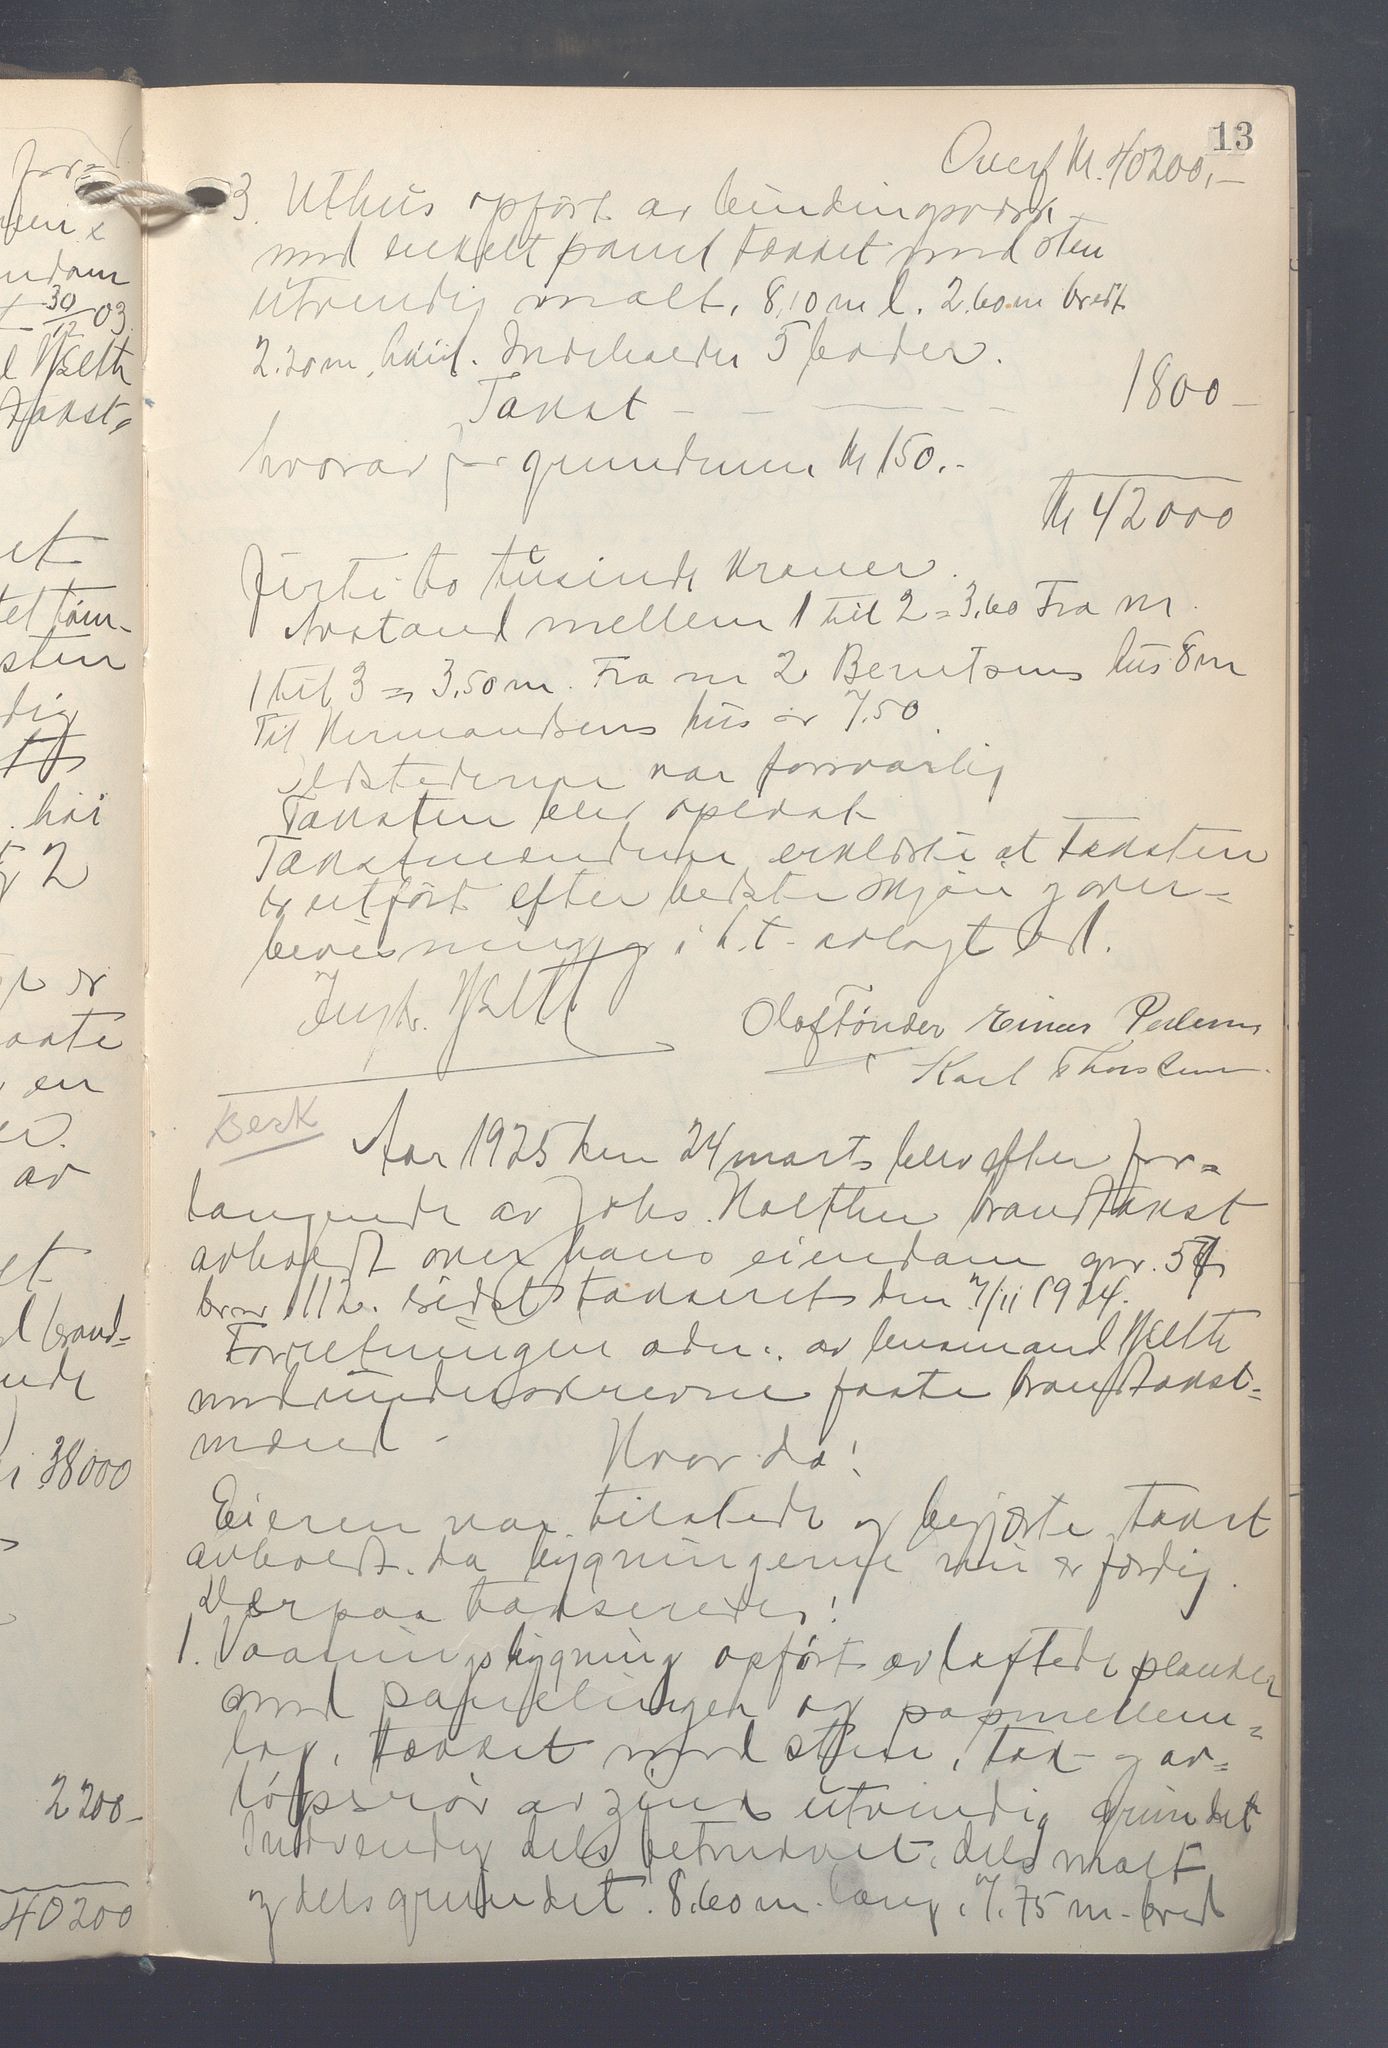 13
Overf Kr. 40200,-
3. Uthus opført av bindingsværk
med enkelt panel tækket med sten
utvendig malt. 8,10 m l. 2,60 m bredt
2.20 m. høit. Indeholder 5 boder.
Takst - - - - - 1800-
hvorav for grundmur Kr 150.-
Kr 42000
Firti to tusinde kroner.
Avstand mellem 1 til 2 = 3,60 Fra nr.
1 til 3 = 3,50 m. Fra nr 2 Berntsens hus 8 m
til Hermandsens hus er 7.50
Ildstederne var forsvarlig
Taksten blev oplæst
Takstmændene erklærte at taksten
er utført efter bedste skjøn og over-
bevisning og i h.t. avlagt ed.
Ingv. Hjelth
Olaf Tønder Einar Pedersen
Karl Thorsen
Besk
Aar 1925 den 24 marts blev efter for-
langende av Johs. Holthen brandtakst
avholdt over hans eiendom gnr. 57
brnr 112. sidst taksert den 7/11 1924.
Forretningen adm. av lensmand Hjelth
med underskrevne faste brandtakst-
mænd -
Hvorda!
Eieren var tilstede og begjærte takst
avholdt, da bygningerne nu er færdig.
Derpaa takseredes!
1. Vaaningsbygning opført av laftede planker
med panelinger og papmellem-
lag, tækket med sten, tak- og av-
løpsrør av zink utvendig grundet
Indvendig dels betrukket, dels malt
og dels grundet. 8,60 m. lang, 7,75 m. bred
for-
30/12 03
Hjelth
takst,
sten
dig
høi
2
er
en
av
brand-
38000
2200-
40200